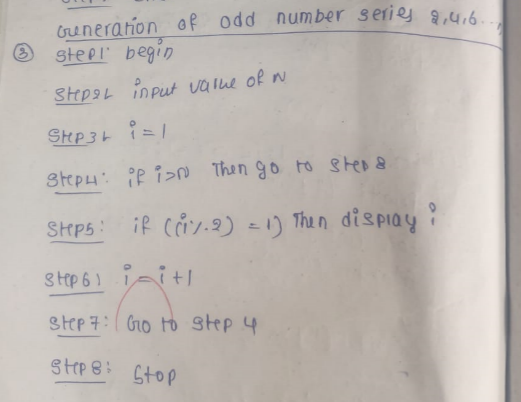 Generation of odd number series 2,4,6...,
③ Step1: begin
Step2: input value of N
Step3: i = 1
Step4: if i>N Then go to step 8
Step5: if ((i%2) = 1) Then display i
Step6: i = i+1
Step7: Go to step 4
Step8: Stop